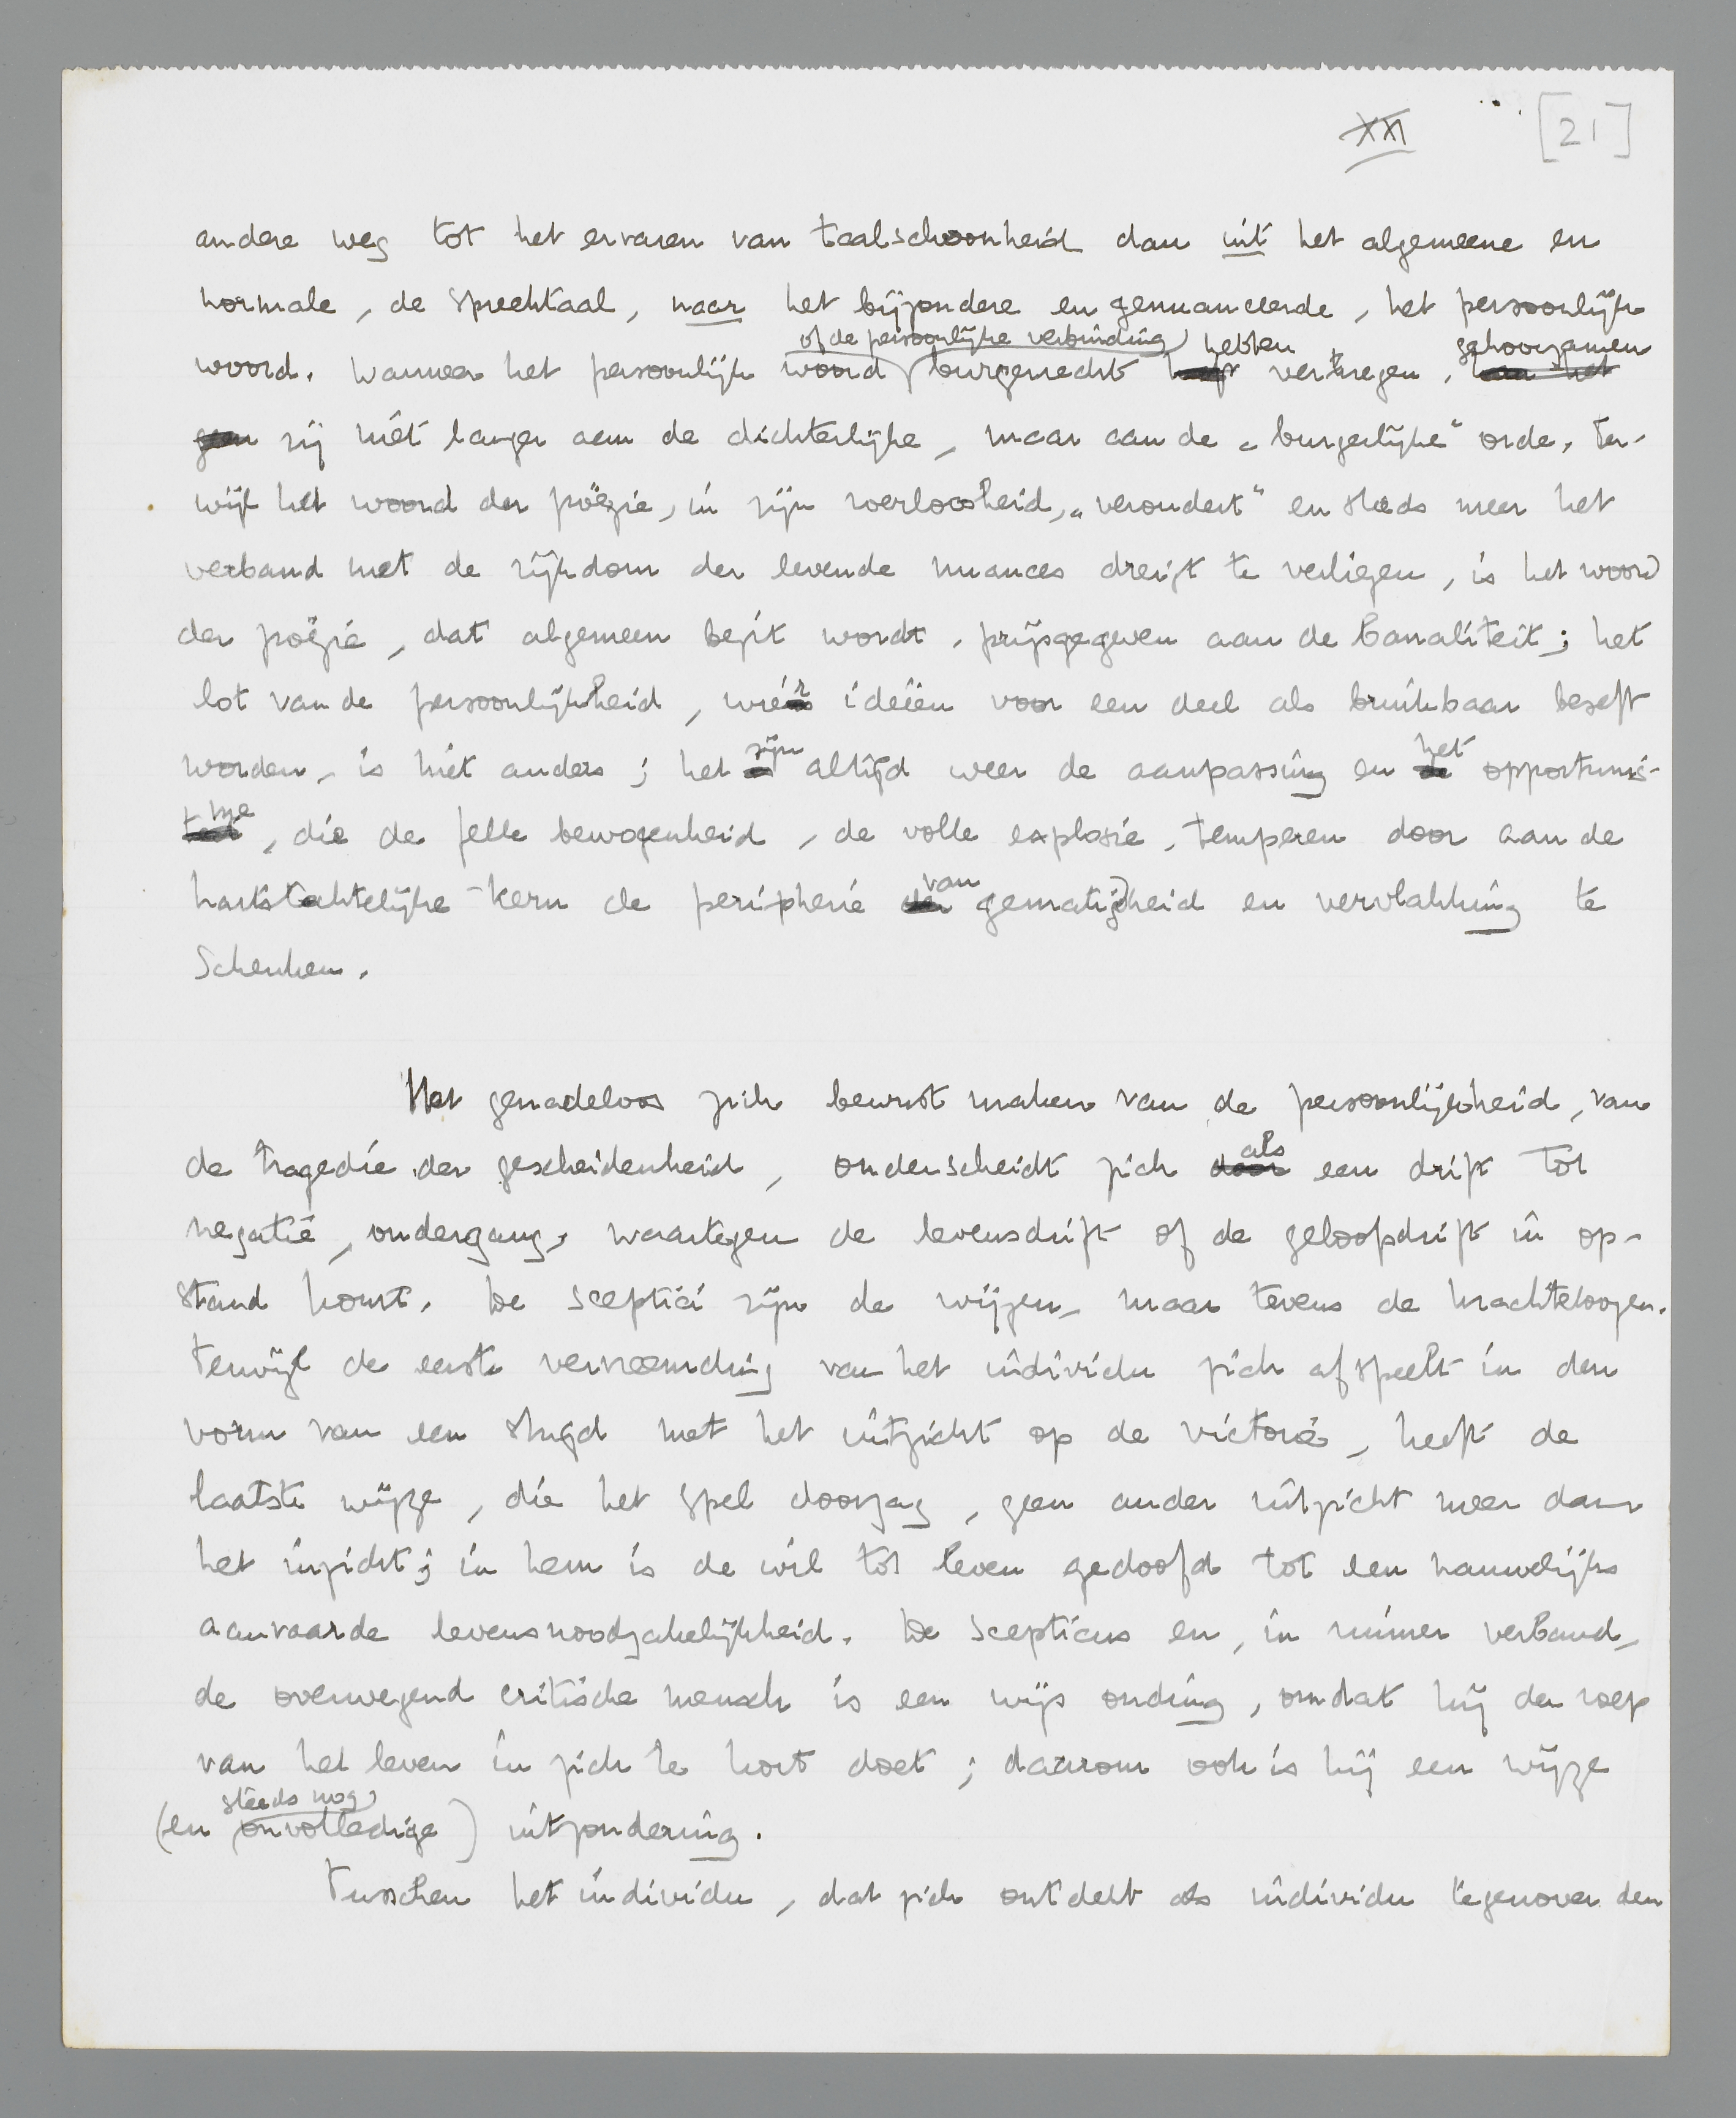 XXI [21]
andere weg tot het ervaren van taalschoonheid dan uit het algemeene en
normale, de spreektaal, naar het bijzondere en genuanceerde, het persoonlijk
of de persoonlijke verbinding hebben gehoorzamen
woord. Wanneer het persoonlijk woord burgerrecht verkregen,
zij niet langer aan de dichterlijke, maar aan de „burgerlijke" orde. Ter-
wijl het woord der poëzie, in zijn voerloosheid, „veroudert" en steeds meer het
verband met de rijkdom der levende nuances dreigt te verliezen, is het woord
der poëzie, dat algemeen bezit wordt, prijsgegeven aan de banaliteit; het
lot van de persoonlijkheid, wier ideëen voor een deel als bruikbaar beseft
zijn het
worden, is niet anders; het altijd weer de aanpassing en opportunis-
me
, die de felle bewogenheid, de volle explosie, temperen door aan de
van
hartstochtelijke kern de peripherie gematigdheid en vervlakking te
schenken.
Het genadeloos zich bewust maken van de persoonlijkheid, van
als
de tragedie der gescheidenheid, onderscheidt zich door een drift tot
negatie, ondergang, waartegen de levensdrift of de geloofsdrift in op-
stand komt. De sceptici zijn de wijzen, maar tevens de krachteloozen.
Terwijl de eerste vervreemding van het individu zich afspeelt in den
vorm van een strijd met het uitzicht op de victorie, heeft de
laatste wijze, die het spel doorzag, geen ander uitzicht meer dan
het inzicht; in hem is de wil tot leven gedoofd tot een nauwelijks
aanvaarde levensnoodzakelijkheid. De scepticus en, in ruimer verband,
de overwegend critische mensch is een wijs onding, omdat hij den roep
van het leven in zich te kort doet; daarom ook is hij een wijze
steeds nog
(en onvolledige) uitzondering.
Tusschen het individu, dat zich ontdekt als individu tegenover den